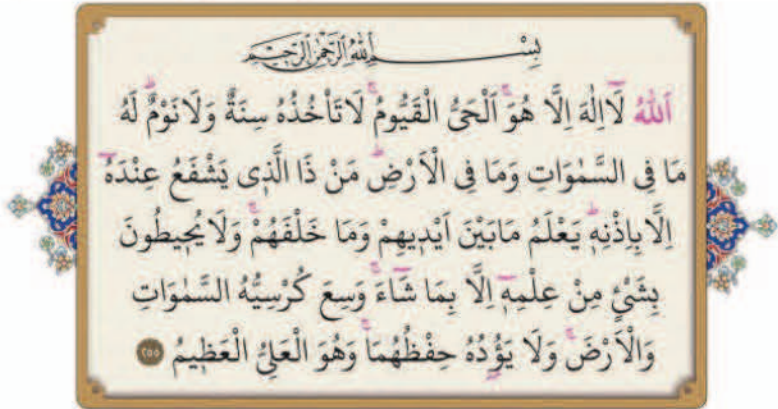 بِسْمِ اللهِ الرَّحْمٰنِ الرَّحِيمِ
اَللهُ لَٓا اِلٰهَ اِلَّا هُوَۚ اَلْحَىُّ الْقَيُّومُۚ لَا تَاْخُذُهُ سِنَةٌ وَلَا نَوْمٌۜ لَهُ
مَا فِى السَّمٰوَاتِ وَمَا فِى الْاَرْضِۜ مَنْ ذَا الَّذ۪ى يَشْفَعُ عِنْدَهُٓ
اِلَّا بِاِذْنِه۪ۜ يَعْلَمُ مَا بَيْنَ اَيْد۪يهِمْ وَمَا خَلْفَهُمْۚ وَلَا يُح۪يطُونَ
بِشَىْءٍ مِنْ عِلْمِه۪ٓ اِلَّا بِمَا شَٓاءَۚ وَسِعَ كُرْسِيُّهُ السَّمٰوَاتِ
وَالْاَرْضَۚ وَلَا يَؤُ۫دُهُ حِفْظُهُمَاۚ وَهُوَ الْعَلِىُّ الْعَظ۪يمُ ٢٥٥